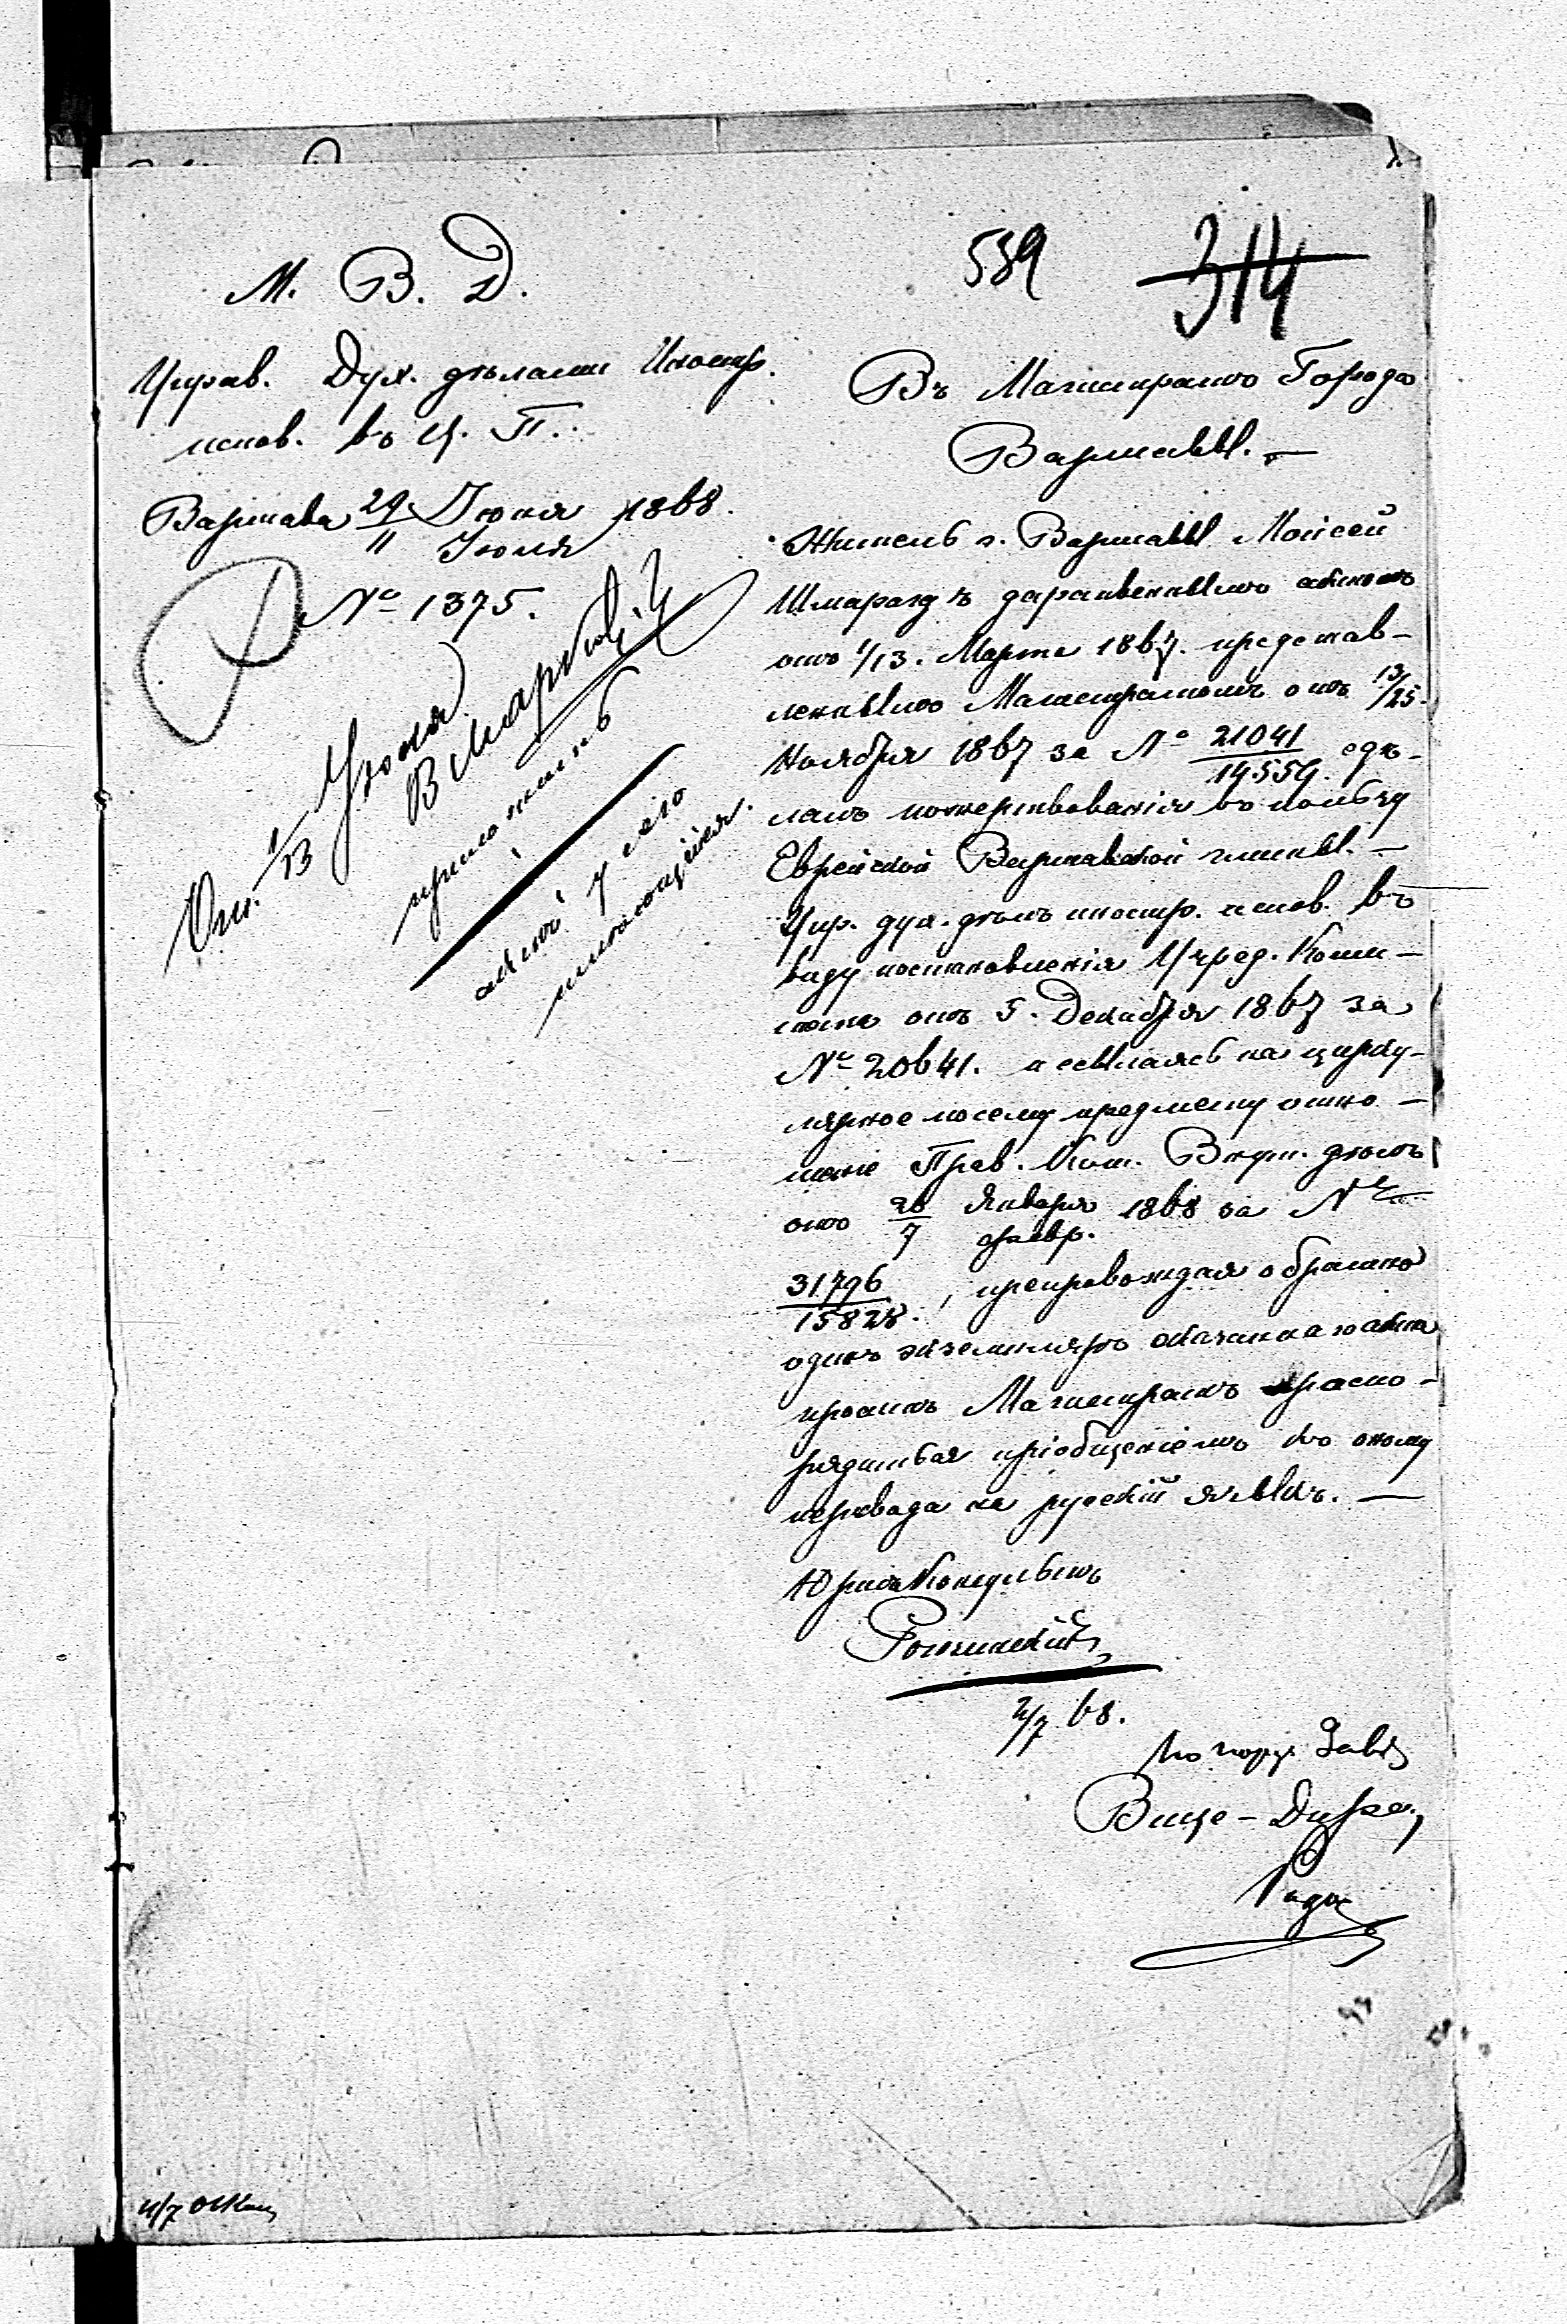 539 314
М. В. Д.
Управ. Дух. дѣлами Иностр.
испов. въ Ц. П.
Варшава 29/11 Іюня/Іюля 1868.
№ 1375.
От. 1/13 Іюля
приложить
актъ у сего
Въ Магистратъ Города
Варшавы. —
Житель г. Варшавы Мойсей
Шмарагдъ дарственнымъ актомъ
отъ 1/13. Марта 1867. представ-
леннымъ Магистратомъ отъ 13/25.
Ноября 1867 за № 21041/14559. сдѣ-
лалъ пожертвованія въ пользу
Еврейской Варшавской гмины. —
Упр. дух. дѣлъ иностр. испов. въ
виду постановленія Учред. Коми-
тета отъ 5. Декабря 1867 за
№ 20641. и ссылаясь на цирку-
лярное по сему предмету отно-
шеніе Прав. Ком. Внутр. дѣлъ
отъ 26/7 Января/Февр. 1868 за №
31796/15828., препровождая обратно
одинъ экземпляръ сказаннаго акта
проситъ Магистратъ распо-
рядиться пріобщеніемъ къ оному
перевода на русскій языкъ. —
Юрисконсультъ
2/7 68.
По поруч. Завѣд
Вице-Дирек
4/7